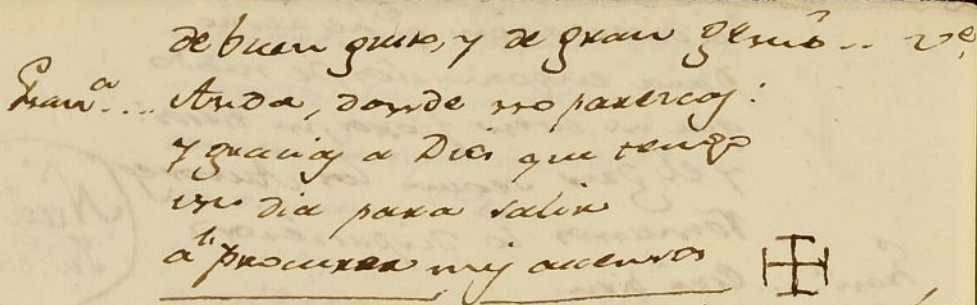 de buen gusto, y de gran genio... Ve,
Fran.ª... Anda, donde no parezcas:
y gracias a Dios que tengo
un dia para salir
a procurar mis ascensos